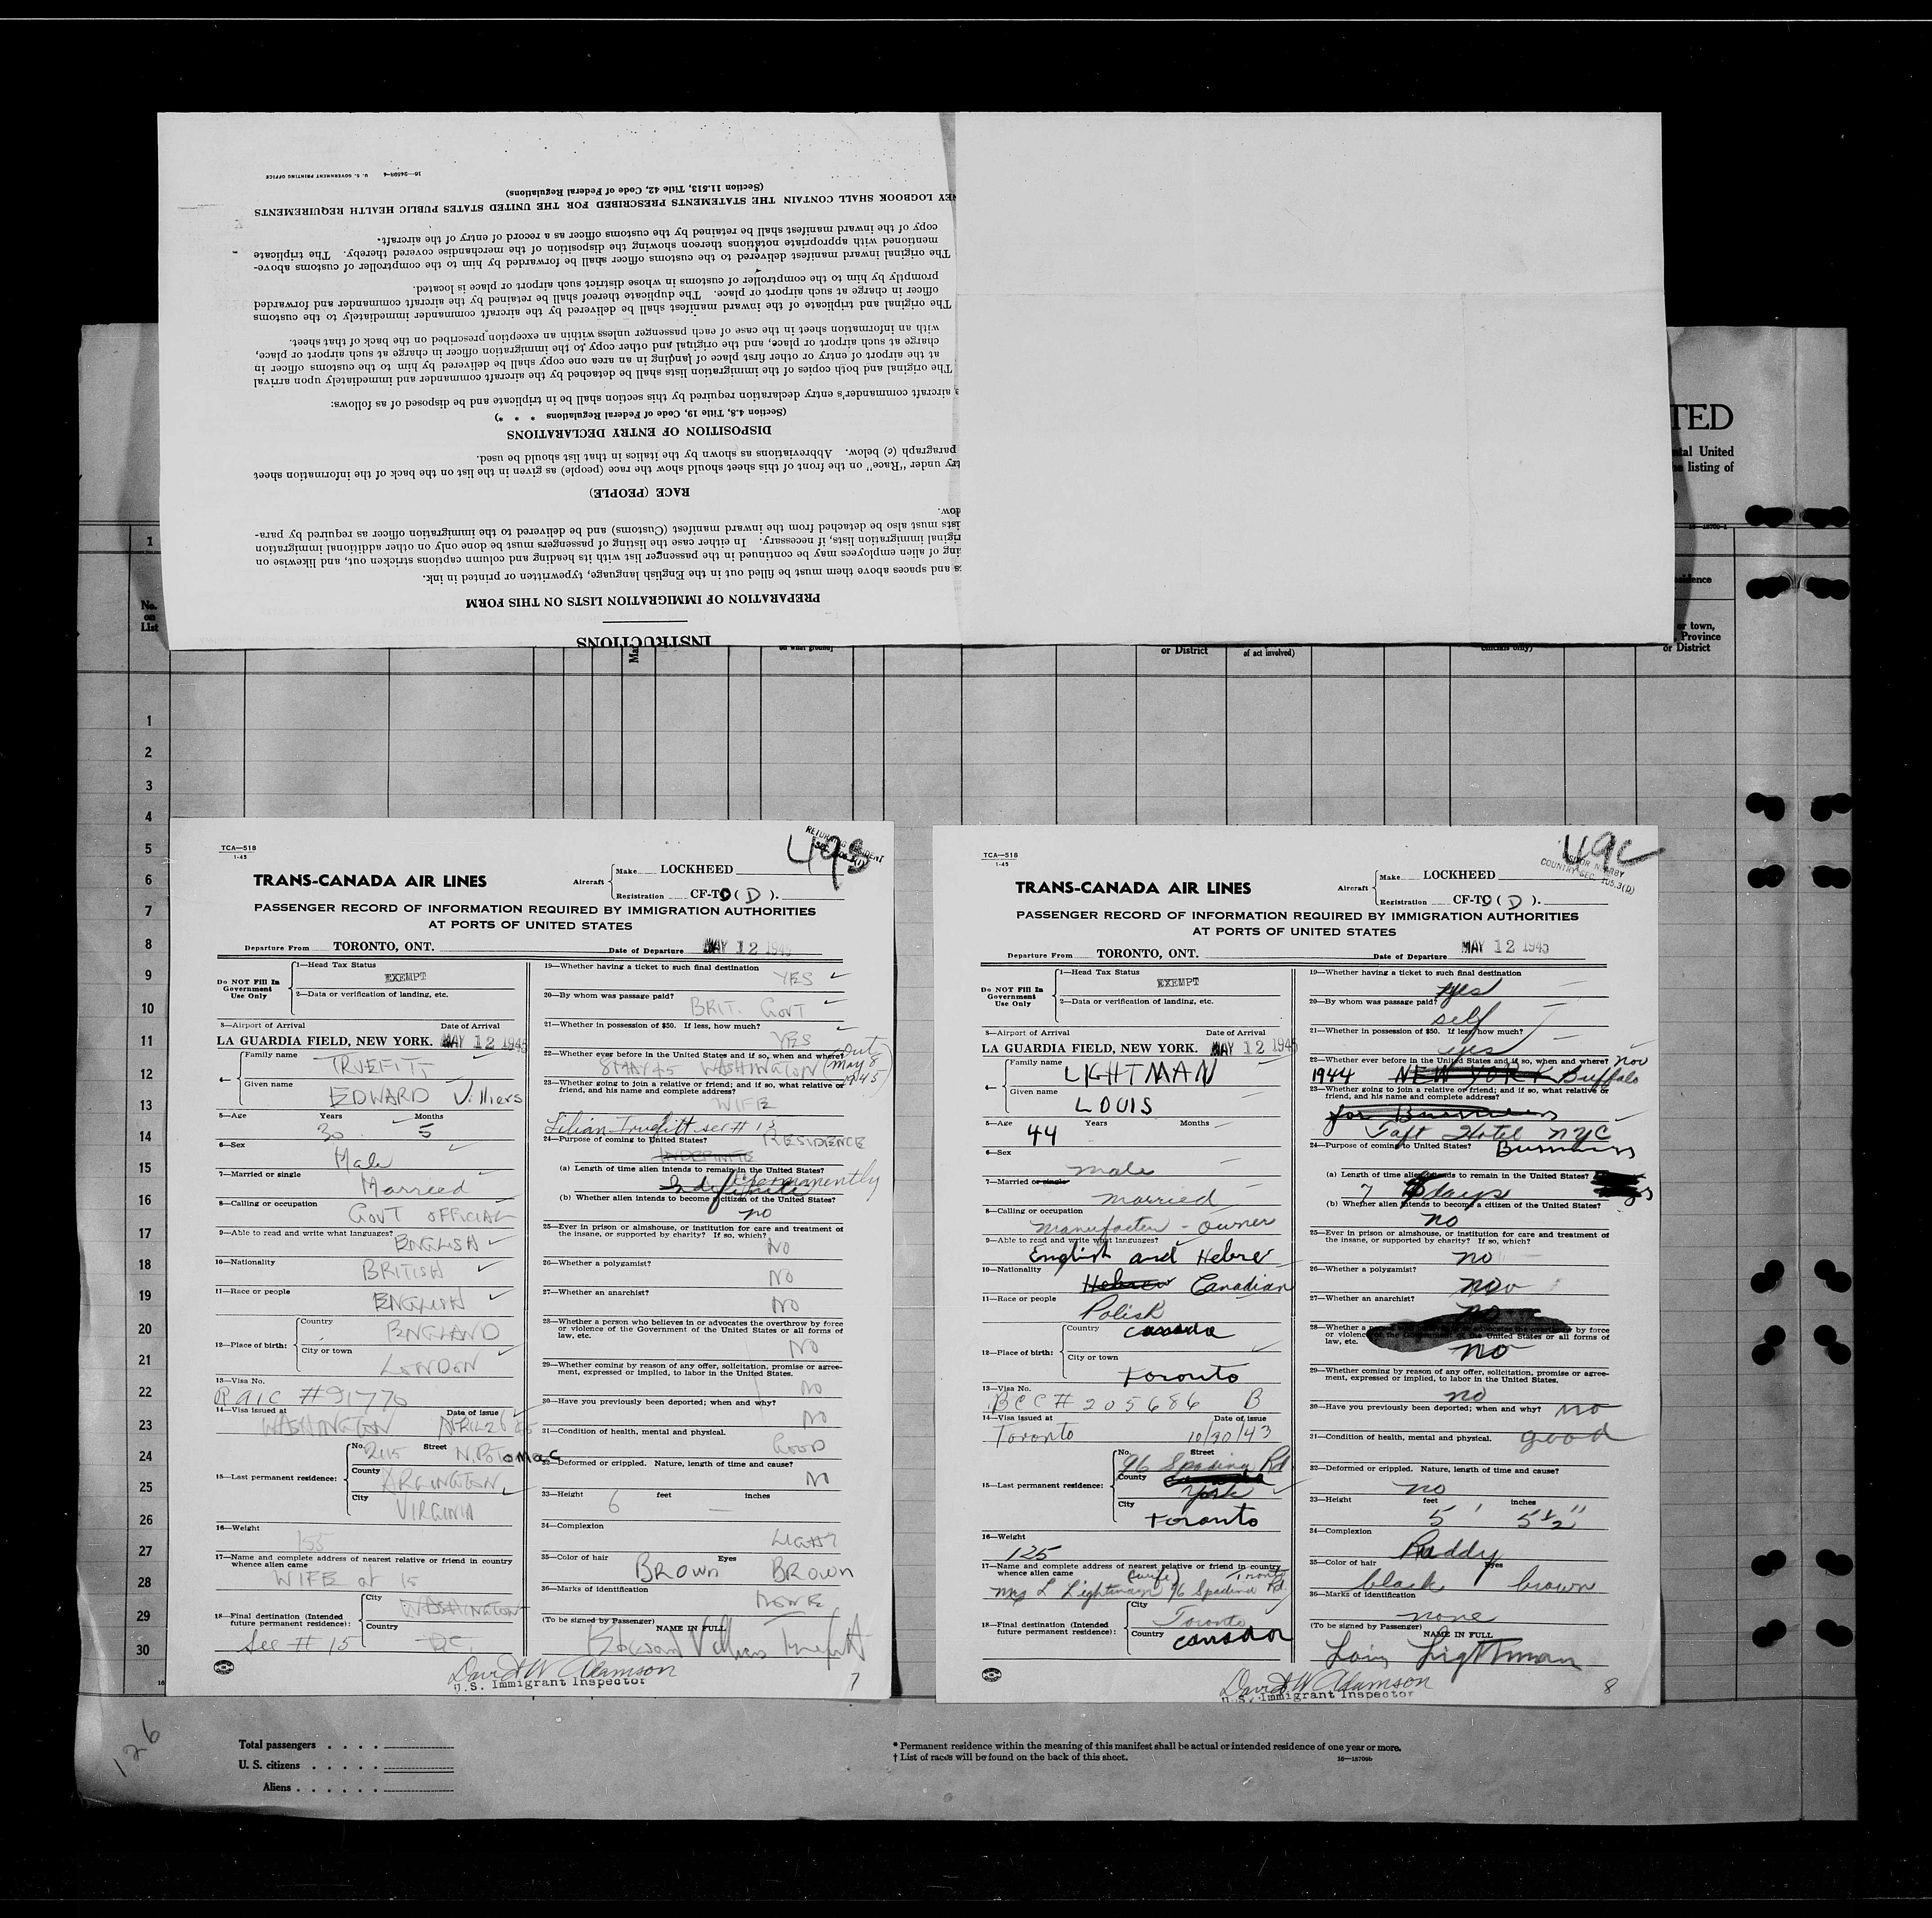 INSTRUCTIONS
PREPARATION OF IMMIGRATION LISTS ON THIS FORM
and spaces above them must be filled out in the English language, typewritten or printed in ink.
ing of alien employees may be continued in the passenger list with its heading and column captions stricken out, and likewise on
riginal immigration lists, if necessary. In either case the listing of passengers must be done only on other additional immigration
ists must also be detached from the inward manifest (Customs) and be delivered to the immigration officer as required by para-
low.
RACE (PEOPLE)
try under "Race" on the front of this sheet should show the race (people) as given in the list on the back of the information sheet
paragraph (c) below. Abbreviations as shown by the italics in that list should be used.
DISPOSITION OF ENTRY DECLARATIONS
(Section 4.8, Title 19, Code of Federal Regulations * * *)
aircraft commander's entry declaration required by this section shall be in triplicate and be disposed of as follows:
The original and both copies of the immigration lists shall be detached by the aircraft commander and immediately upon arrival
at the airport of entry or other first place of landing in an area one copy shall be delivered by him to the customs officer in
charge at such airport or place, and the original and other copy to the immigration officer in charge at such airport or place,
with an information sheet in the case of each passenger unless within an exception prescribed on the back of that sheet.
The original and triplicate of the inward manifest shall be delivered by the aircraft commander immediately to the customs
officer in charge at such airport or place. The duplicate thereof shall be retained by the aircraft commander and forwarded
promptly by him to the comptroller of customs in whose district such airport or place is located.
The original inward manifest delivered to the customs officer shall be forwarded by him to the comptroller of customs above-
mentioned with appropriate notations thereon showing the disposition of the merchandise covered thereby. The triplicate
copy of the inward manifest shall be retained by the customs officer as a record of entry of the aircraft.
NEY LOGBOOK SHALL CONTAIN THE STATEMENTS PRESCRIBED FOR THE UNITED STATES PUBLIC HEALTH REQUIREMENTS
(Section 11.513, Title 42, Code of Federal Regulations)
U. S. GOVERNMENT PRINTING OFFICE
TED
tal United
listing of
1
No.
on
List
or town,
Province
or District
or District
of act involved)
1
2
3
4
5
6
7
8
9
10
11
12
13
14
15
16
17
18
19
20
21
22
23
24
25
26
27
28
29
30
TCA—518
1-45
49B
TRANS-CANADA AIR LINES
Aircraft
Make LOCKHEED
Registration CF-TC (D).
PASSENGER RECORD OF INFORMATION REQUIRED BY IMMIGRATION AUTHORITIES
AT PORTS OF UNITED STATES
Departure From TORONTO, ONT. Date of Departure MAY 12 1945
Do NOT Fill In
Government
Use Only
1—Head Tax Status
EXEMPT
2—Data or verification of landing, etc.
3—Airport of Arrival Date of Arrival
LA GUARDIA FIELD, NEW YORK. MAY 12 1945
4— Family name
TRUEFITT
Given name
EDWARD Villiers
5—Age Years Months
30 5
6—Sex
Male
7—Married or single
Married
8—Calling or occupation
GOVT OFFICIAL
9—Able to read and write what languages?
ENGLISH
10—Nationality
BRITISH
11—Race or people
ENGLISH
12—Place of birth: Country
ENGLAND
City or town
LONDON
13—Visa No.
RAIC #91770
14—Visa issued at Date of issue
WASHINGTON APRIL 26 45
15—Last permanent residence: No. Street
2115 N. POTOMAC
County
ARLINGTON
City
VIRGINIA
16—Weight
155
17—Name and complete address of nearest relative or friend in country
whence alien came
WIFE at 15
18—Final destination (Intended
future permanent residence):
See # 15
City
WASHINGTON
Country
DC.
19—Whether having a ticket to such final destination
YES
20—By whom was passage paid?
BRIT. GOVT
21—Whether in possession of $50. If less, how much?
YES
22—Whether ever before in the United States and if so, when and where?
8 MAY 45 WASHINGTON (Out May 8 1945)
23—Whether going to join a relative or friend; and if so, what relative or
friend, and his name and complete address?
WIFE
Lilian Truefitt see # 15
24—Purpose of coming to United States? RESIDENCE
INDEFINITE
(a) Length of time alien intends to remain in the United States?
Indefinite Permanently
(b) Whether alien intends to become a citizen of the United States?
no
25—Ever in prison or almshouse, or institution for care and treatment of
the insane, or supported by charity? If so, which?
NO
26—Whether a polygamist?
NO
27—Whether an anarchist?
NO
28—Whether a person who believes in or advocates the overthrow by force
or violence of the Government of the United States or all forms of
law, etc.
NO
29—Whether coming by reason of any offer, solicitation, promise or agree-
ment, expressed or implied, to labor in the United States.
NO
30—Have you previously been deported; when and why?
NO
31—Condition of health, mental and physical.
GOOD
32—Deformed or crippled. Nature, length of time and cause?
NO
33—Height feet inches
6 —
34—Complexion
LIGHT
35—Color of hair Eyes
BROWN BROWN
36—Marks of identification
NONE
(To be signed by Passenger) NAME IN FULL
Edward Villiers Truefitt
David W. Adamson
U.S. Immigrant Inspector
7
TCA—518
1-45
49C
COUNTRY SEC. 105.3(D)
TRANS-CANADA AIR LINES
Aircraft
Make LOCKHEED
Registration CF-TC (D).
PASSENGER RECORD OF INFORMATION REQUIRED BY IMMIGRATION AUTHORITIES
AT PORTS OF UNITED STATES
Departure From TORONTO, ONT. Date of Departure MAY 12 1945
Do NOT Fill In
Government
Use Only
1—Head Tax Status
EXEMPT
2—Data or verification of landing, etc.
3—Airport of Arrival Date of Arrival
LA GUARDIA FIELD, NEW YORK. MAY 12 1945
4— Family name
LIGHTMAN
Given name
LOUIS
5—Age Years Months
44
6—Sex
male
7—Married or single
married
8—Calling or occupation
Manufacter - owner
9—Able to read and write what languages?
English and Hebrew
10—Nationality
Hebrew Canadian
11—Race or people
Polish
12—Place of birth: Country
Canada
City or town
Toronto
13—Visa No.
BCC # 205686 B
14—Visa issued at Date of issue
Toronto 10/30/43
15—Last permanent residence: No. Street
96 Spadina Rd
County
Canada
York
City
Toronto
16—Weight
125
17—Name and complete address of nearest relative or friend in country
whence alien came (wife) Toronto
Mrs L Lightman 96 Spadina Rd.
18—Final destination (Intended
future permanent residence):
City
Toronto
Country
Canada
19—Whether having a ticket to such final destination
yes
20—By whom was passage paid?
self
21—Whether in possession of $50. If less, how much?
yes
22—Whether ever before in the United States and if so, when and where? Nov
1944 NEW YORK Buffalo
23—Whether going to join a relative or friend; and if so, what relative or
friend, and his name and complete address?
for Business
Taft Hotel NYC
24—Purpose of coming to United States? Business
(a) Length of time alien intends to remain in the United States?
7 days
(b) Whether alien intends to become a citizen of the United States?
no
25—Ever in prison or almshouse, or institution for care and treatment of
the insane, or supported by charity? If so, which?
no
26—Whether a polygamist?
no
27—Whether an anarchist?
no
28—Whether a by force
or violence of the Government of the United States or all forms of
law, etc.
no
29—Whether coming by reason of any offer, solicitation, promise or agree-
ment, expressed or implied, to labor in the United States.
no
30—Have you previously been deported; when and why? no
31—Condition of health, mental and physical. good
32—Deformed or crippled. Nature, length of time and cause?
no
33—Height feet inches
5' 5 1/2"
34—Complexion
Ruddy
35—Color of hair Eyes
black brown
36—Marks of identification
none
(To be signed by Passenger) NAME IN FULL
Louis Lightman
David W. Adamson
U.S. Immigrant Inspector
8
126
Total passengers . . . .
U. S. citizens . . . . .
Aliens . . . . . .
* Permanent residence within the meaning of this manifest shall be actual or intended residence of one year or more.
† List of races will be found on the back of this sheet.